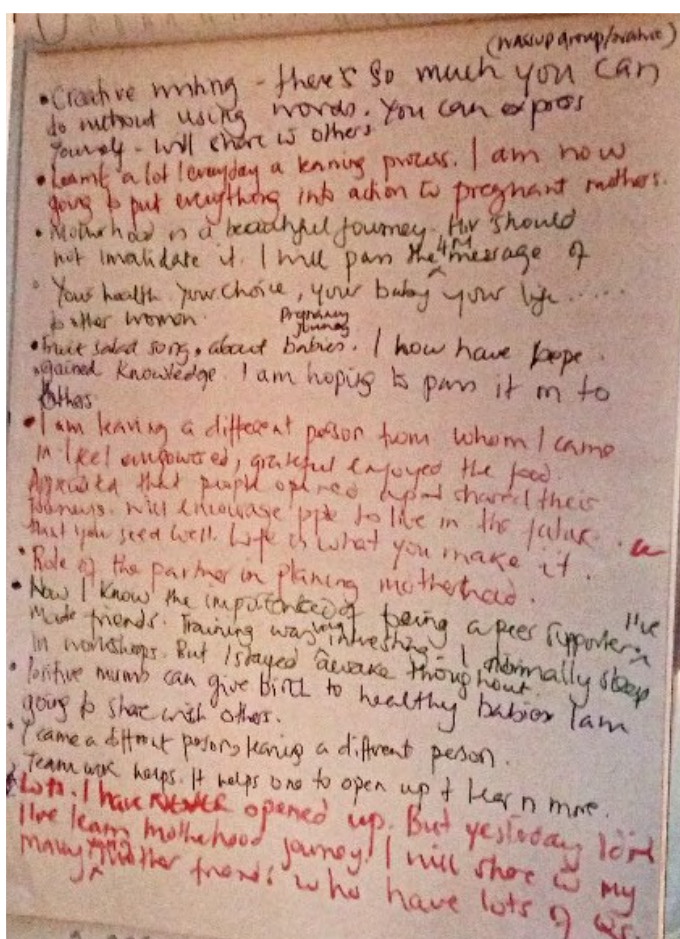 (wassup group/
• Creative writing - there's so much you can
do without using words. You can express
yourself - will share w others
• Learnt a lot / everyday a learning process. I am now
going to put everything into action to pregnant mothers.
• Motherhood is a beautiful journey. HIV should
not invalidate it. I will pass the 4M message of
Your health your choice, your baby your life ......
to other women.
Pregnancy
journey
• fruit salad song, about babies. I now have hope.
• gained knowledge. I am hoping to pass it on to
others
• I am leaving a different person from whom I came
in I feel empowered, grateful enjoyed the food.
that people opened up and shared their
journeys. Will encourage ppl to live in the future.
that you seed well. Life is what you make it.
• Role of the partner in planing motherhood.
• Now I know the importance of being a peer supporter. I've
made friends. Training was interesting. I normally sleep
in workshops. But I stayed awake throughout.
• Positive mums can give birth to healthy babies I am
going to share with others.
• I came a diffrent person, leaving a different person.
Team work helps. It helps one to open up + learn more.
Lots. I have never opened up. But yesterday I did
I've learn motherhood journey. I will share w my
many mother friends who have lots of